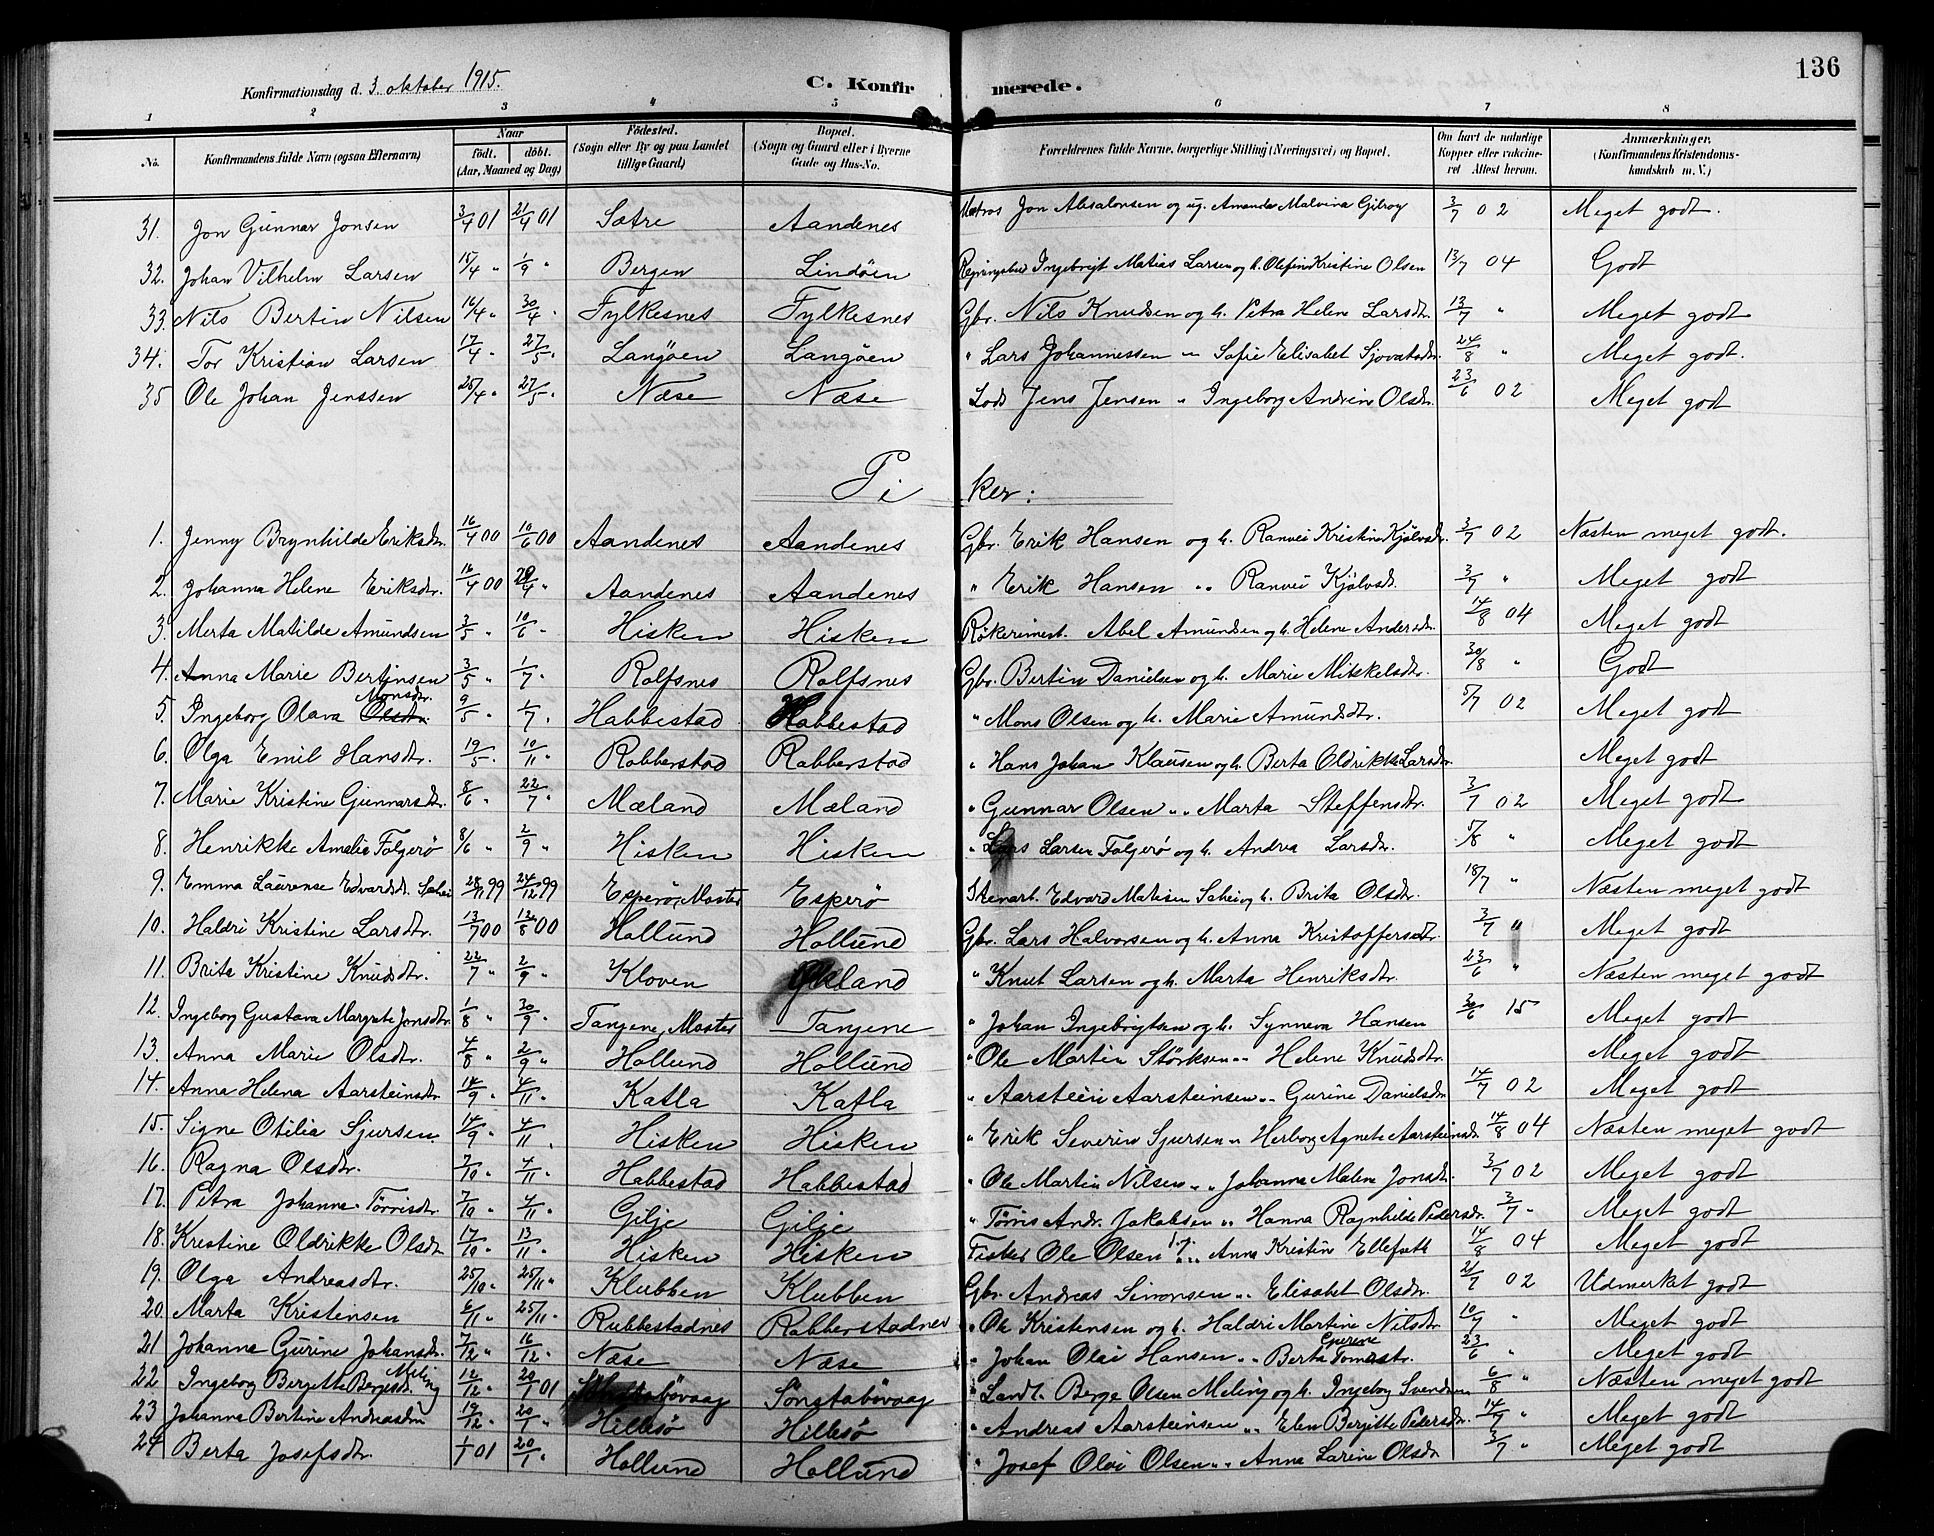 136
Konfirmationsdag d. 3. oktober 1915.
C. Konfirmerede.
1 2 3 4 5 6 7 8
No. Konfirmandens fulde Navn (ogsaa Efternavn) Naar født. døbt. (Aar, Maaned og Dag) Fødested. (Sogn eller By og paa Landet tillige Gaard) Bopæl. (Sogn og Gaard eller i Byerne Gade og Hus-No. Forældrenes fulde Navne, borgerlige Stilling (Næringsvei) og Bopæl. Om havt de naturlige Kopper eller vaccineret Attest herom. Anmærkninger. (Konfirmandens Kristendomskundskab m. V.)
31. Jon Gunnar Jonsen 3/4 01 21/4 01 Sætre Aandenes Matros Jon Absalonsen og ug. Amanda Malvina Gilroy 3/7 02 Meget godt.
32. Johan Vilhelm Larsen 15/4 " 1/9 " Bergen Lindöen Ingebrigt Matias Larsen og h. Olefin Kristine Olsen 13/7 04 Godt
33. Nils Bertin Nilsen 16/4 " 30/4 " Fylkesnes Fylkesnes Gbr. Nils Knudsen og h. Petra Helene Larsdtr. 13/7 " Meget godt
34. Tor Kristian Larsen 17/4 " 27/5 " Langöen Langöen " Lars Johannessen " Sofie Elisabet Sjovatsdtr. 24/8 " Meget godt.
35 Ole Johan Jenssen 25/4 " 27/5 " Næse Næse Lods Jens Jensen " Ingeborg Andrine Olsdtr. 23/6 02 Meget godt
Piker:
1. Jenny Brynhilde Eriksdtr. 16/4 00 10/6 00 Aandenes Aandenes Gbr. Erik Hansen og h. Ranvei Kristine Kjölvsdtr. 3/7 02 Næsten meget godt.
2. Johanna Helene Eriksdtr. 16/4 00 29/4 " Aandenes Aandenes " Erik Hansen " " Ranvei Kjölvsdtr. 3/7 " Meget godt
3. Merta Matilde Amundsen 3/5 " 10/6 " Hisken Hisken Abel Amundsen og h. Helene Andersdtr. 14/8 04 Meget godt
4. Anna Marie Bertinsen 3/5 " 1/7 " Rolfsnes Rolfsnes Gbr. Bertin Danielsen og h. Marie Mikkelsdtr. 30/8 " Godt
5. Ingeborg Olava Olsdtr. Monsdtr. 9/5 " 1/7 " Habbestad Habbestad " Mons Olsen og h. Marie Amundsdtr. 5/7 02 Meget godt
6. Olga Emil Hansdtr. 19/5 " 10/11 " Robberstad Rabberstad " Hans Johan Klausen og h. Berta Oldrikke Larsdtr. Meget godt
7. Marie Kristine Gunnarsdtr. 8/6 " 22/7 " Mæland Mæland " Gunnar Olsen " " Marta Steffensdtr. 3/7 02 Meget godt
8. Henrikke Amalie Folgerø 8/6 " 2/9 " Hisken Hisken " Lars Larsen Folgerø og h. Andrea Larsdtr. 5/8 " Meget godt
9. Emma Laurense Edvardsdt. 28/11 99 24/12 99 Esperö, Moster Esperö Edvard Matisen og h. Brita Olsdtr. 18/7 " Næsten meget godt
10. Haldri Kristine Larsdtr. 13/7 00 12/8 00 Hollund Hollund Gbr. Lars Halvorsen og h. Anna Kristoffersdtr. 3/7 " Meget godt
11. Brita Kristine Knudsdtr. 22/7 " 2/9 " Kloven Ökland " Knut Larsen og h. Marta Henriksdtr. 23/6 " Næsten meget godt
12. Ingeborg Gustava Margrete Jonsdtr. 1/8 " 30/9 " Tangene, Moster Tangene " Johan Ingebrigtsen og h. Synneva Hansen 30/6 15 Meget godt
13. Anna Marie Olsdtr. 4/8 " 2/9 " Hollund Hollund " Ole Martin Störksen " " Helene Knudsdtr. Meget godt
14. Anna Helena Aarsteinsdtr 14/9 " 4/11 " Katla Katla " Aarstein Aarsteinsen " " Gurine Danielsdtr 14/7 02 Meget godt
15. Signe Otilia Sjursen 14/9 " 4/11 " Hisken Hisken " Erik Severin Sjursen " Herborg Agnete Aarsteinsdtr. 14/8 04 Næsten meget godt
16. Ragna Olsdtr. 7/10 " 4/11 " Habbestad Habbestad " Ole Martin Nilsen " " Johanna Malene Jonsdtr. 3/7 02 Meget godt
17. Petra Johanna Törrisdtr. 7/10 " 4/11 " Gilje Gilje " Törris Andr. Jakobsen " Hanna Ragnhilde Pedersdtr. 3/7 " Meget godt
18. Kristine Oldrikke Olsdtr 17/10 " 13/11 " Hisken Hisken Fisker Ole Olsen " Anna Kristin 14/8 04 Meget godt
19. Olga Andreasdtr. 25/10 " 25/11 " Klubben Klubben Gbr. Andreas Simonsen " " Elisabet Olsdtr. 21/7 02 Udmerket godt
20. Marta Kristensen 6/11 " 25/11 " Rubbestadnes Robberstadnes " Ole Kristensen og h. Haldri Martine Nilsdtr 10/7 " Meget godt
21 Johanna Gurine Johansdtr. 7/12 " 16/12 " Næse Næse " Johan Olai Hansen " " Berta Gurine Tomasdtr. 23/6 " Meget godt
22 Ingeborg Bergitte Bergesdtr. Meling 12/12 " 20/1 01 Sönstabövaag " Landh. Berge Olsen Meling og h. Ingeborg Svendsen 6/8 " Næsten meget godt
23 Johanna Bertine Andreasdtr 19/12 " 20/1 " Hillesö Hillesö " Andreas Aarsteinsen " " Elen Bergitte Pedersdtr. 14/7 " Meget godt
24 Berta Josefsdtr. 1/1 01 20/1 " Hollund Hollund " Josef Olai Olsen " " Anna Larine Olsdtr 3/7 " Meget godt